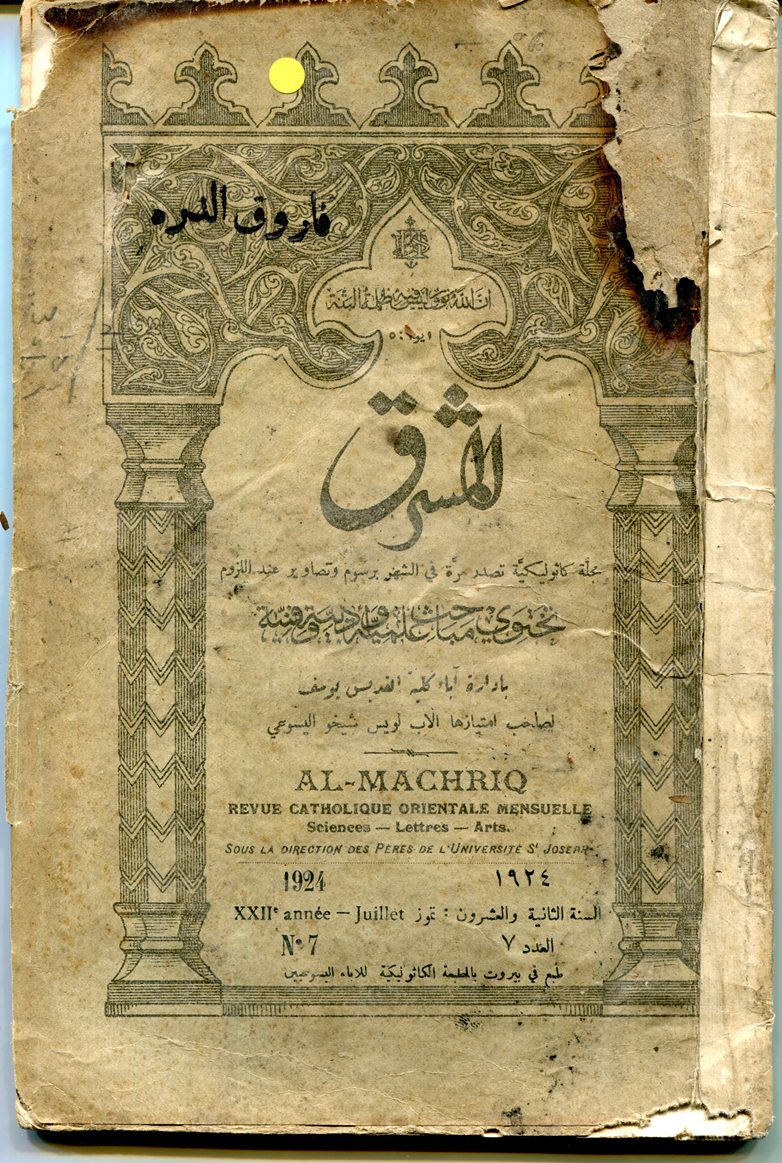 فاروق
ان الله نور وليس فيه ظلمة البتة
المشرق
مجلّة كاثوليكيَّة تصدر مرَّة في الشهر برسوم وتصاوير عند اللزوم
تحتوي مباحث علمية وأدبية وفنية
بادارة آباء كلية القديس يوسف
لصاحب امتيازها الاب لويس شيخو اليسوعي
AL-MACHRIQ
REVUE CATHOLIQUE ORIENTALE MENSUELLE
Sciences — Lettres — Arts.
SOUS LA DIRECTION DES PÈRES DE L'UNIVERSITÉ St JOSEPH
1924 ١٩٢٤
XXIIe année — Juillet السنة الثانية والعشرون : تموز
No 7 العدد ٧
طبع في بيروت بالمطبعة الكاثوليكية للاباء اليسوعيين